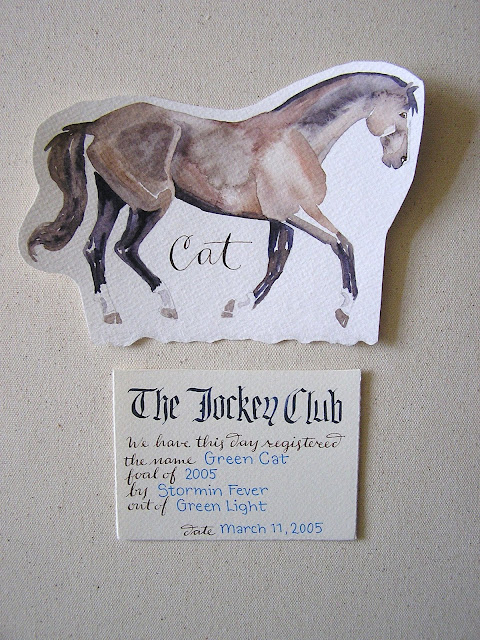 Cat
The Jockey Club
We have this day registered
the name Green Cat
foal of 2005
by Stormin Fever
out of Green Light
date March 11, 2005